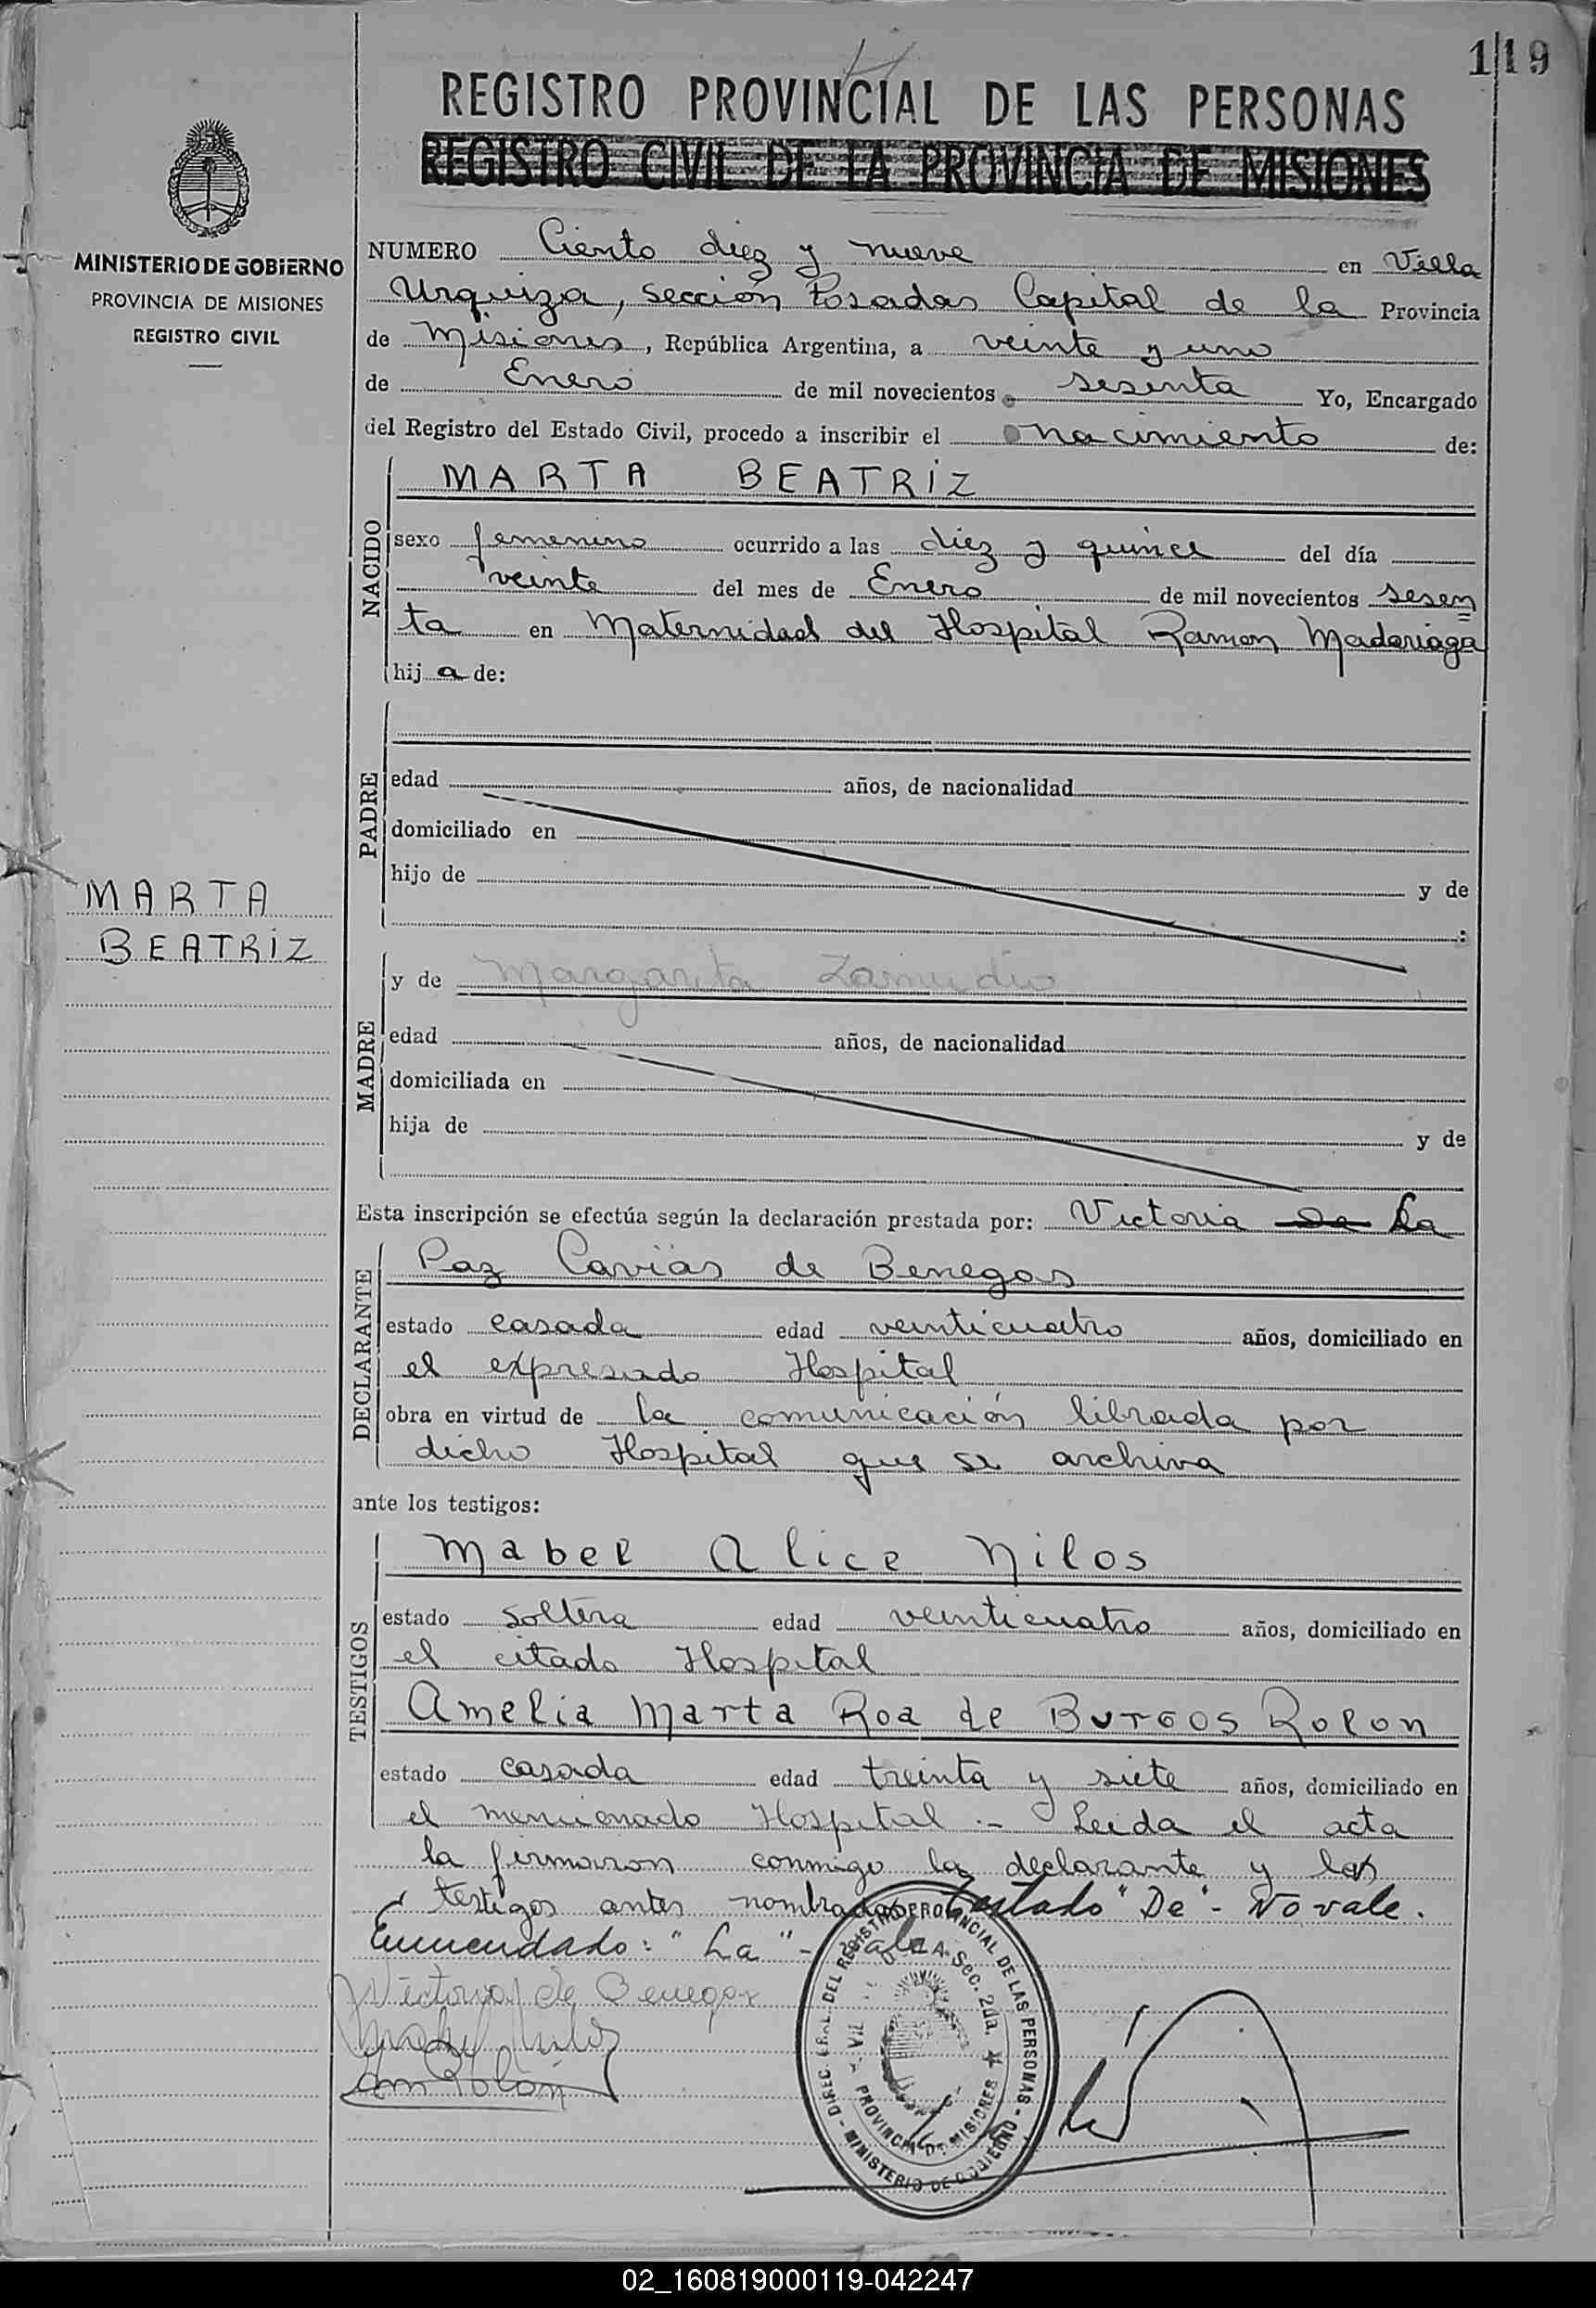 1119
REGISTRO PROVINCIAL DE LAS PERSONAS
REGISTRO CIVIL DE LA PROVINCIA DE MISIONES
MINISTERIO DE GOBIERNO
PROVINCIA DE MISIONES
REGISTRO CIVIL
NUMERO Ciento diez y nueve en Villa
Urquiza, sección Posadas Capital de la Provincia
de Misiones, República Argentina, a veinte y uno
de Enero de mil novecientos sesenta Yo, Encargado
del Registro del Estado Civil, procedo a inscribir el nacimiento de:
NACIDO
MARTA BEATRIZ
sexo femenino ocurrido a las diez y quince del día
veinte del mes de Enero de mil novecientos sesen
ta en Maternidad del Hospital Ramon Madariaga
hij a de:
PADRE
edad años, de nacionalidad
domiciliado en
hijo de y de
:
MARTA
BEATRIZ
MADRE
y de Margarita Zamudio
edad años, de nacionalidad
domiciliada en
hija de y de
Esta inscripción se efectúa según la declaración prestada por: Victoria De La
DECLARANTE
Paz Cavias de Benegas
estado casada edad veinticuatro años, domiciliado en
el expresado Hospital
obra en virtud de la comunicación librada por
dicho Hospital que se archiva
ante los testigos:
TESTIGOS
Mabel Alice Nilos
estado soltera edad veinticuatro años, domiciliado en
el citado Hospital
Amelia Marta Roa de Burgos Rolon
estado casada edad treinta y siete años, domiciliado en
el mencionado Hospital .- Leida el acta
la firmaron conmigo la declarante y las
testigos antes nombradas Testado "De" - No vale.
Enmendado: "La" - Vale
DIREC. GRAL. DEL REGISTRO PROVINCIAL DE LAS PERSONAS - MINISTERIO DE GOBIERNO -
Sec. 2da.
PROVINCIA DE MISIONES
Victoria de Benegas
02_160819000119-042247